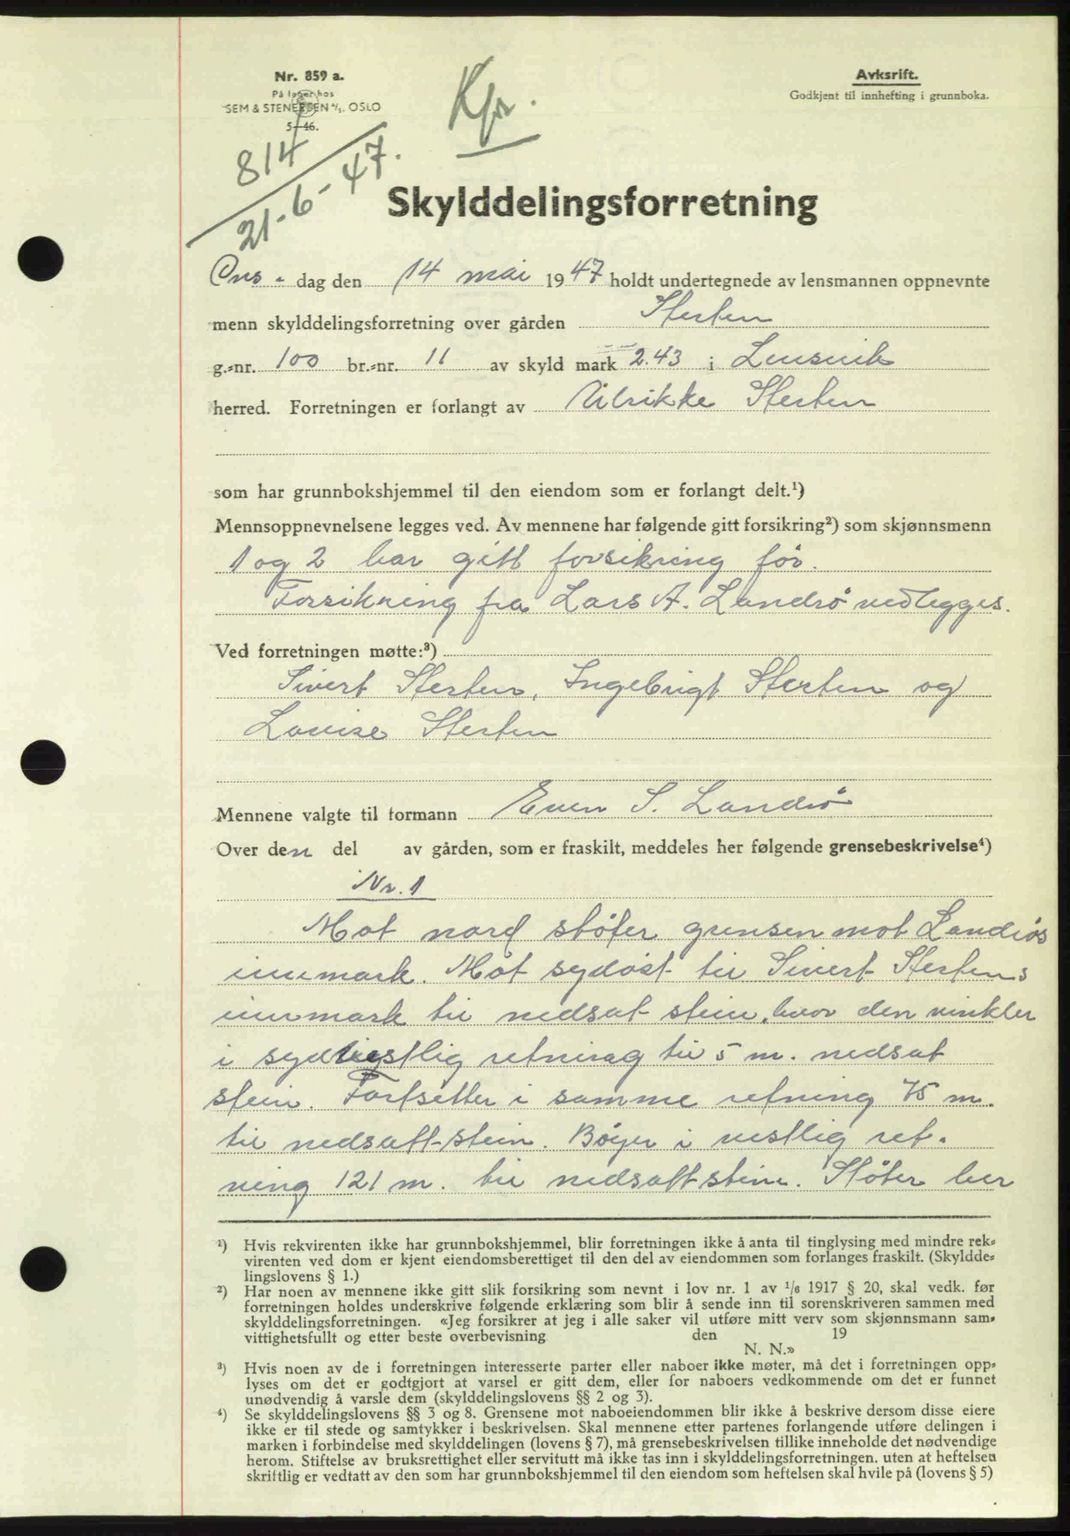 Nr. 859 a.
På lager hos
SEM & STENERSEN A/S. OSLO
5-46.
Avksrift.
Godkjent til innhefting i grunnboka.
Kfr.
814
21-6-47.
Skylddelingsforretning
Ons- dag den 14 mai 1947 holdt undertegnede av lensmannen oppnevnte
menn skylddelingsforretning over gården Sterten
g.-nr. 100 br.-nr. 11 av skyld mark 2.43 i Lensvik
herred. Forretningen er forlangt av Ulrikke Sterten
som har grunnbokshjemmel til den eiendom som er forlangt delt.¹)
Mennsoppnevnelsene legges ved. Av mennene har følgende gitt forsikring²) som skjønnsmenn
1 og 2 har gitt forsikring før.
Forsikring fra Lars A. Landrö vedlegges.
Ved forretningen møtte:³)
Sivert Sterten, Ingebrigt Sterten og
Louise Sterten
Mennene valgte til formann Even S. Landrö
Over den del av gården, som er fraskilt, meddeles her følgende grensebeskrivelse⁴)
Nr. 1
Mot nord støter grensen mot Landrös
innmark. Mot sydöst til Sivert Stertens
innmark til nedsat stein, hvor den vinkler
i sydvestlig retning til 5 m. nedsat
stein. Fortsetter i samme retning 75 m.
til nedsatt stein. Böyer i vestlig ret-
ning 121 m. til nedsatt stein. Støter her
¹) Hvis rekvirenten ikke har grunnbokshjemmel, blir forretningen ikke å anta til tinglysing med mindre rek-
virenten ved dom er kjent eiendomsberettiget til den del av eiendommen som forlanges fraskilt. (Skyldde-
lingslovens § 1.)
²) Har noen av mennene ikke gitt slik forsikring som nevnt i lov nr. 1 av 1/6 1917 § 20, skal vedk. før
forretningen holdes underskrive følgende erklæring som blir å sende inn til sorenskriveren sammen med
skylddelingsforretningen. «Jeg forsikrer at jeg i alle saker vil utføre mitt verv som skjønnsmann sam-
vittighetsfullt og etter beste overbevisning den 19
N. N.»
³) Hvis noen av de i forretningen interesserte parter eller naboer ikke møter, må det i forretningen opp-
lyses om det er godtgjort at varsel er gitt dem, eller for naboers vedkommende om det er funnet
unødvendig å varsle dem (skylddelingslovens §§ 2 og 3).
⁴) Se skylddelingslovens §§ 3 og 8. Grensene mot naboeiendommen blir ikke å beskrive dersom disse eiere
ikke er til stede og samtykker i beskrivelsen. Skal mennene etter partenes forlangende utføre delingen i
marken i forbindelse med skylddelingen (lovens § 7), må grensebeskrivelsen tillike inneholde det nødvendige
herom. Stiftelse av bruksrettighet eller servitutt må ikke tas inn i skylddelingsforretningen, uten at heftelsen
skriftlig er vedtatt av den som har grunnbokshjemmel til den eiendom som heftelsen skal hvile på (lovens § 5)